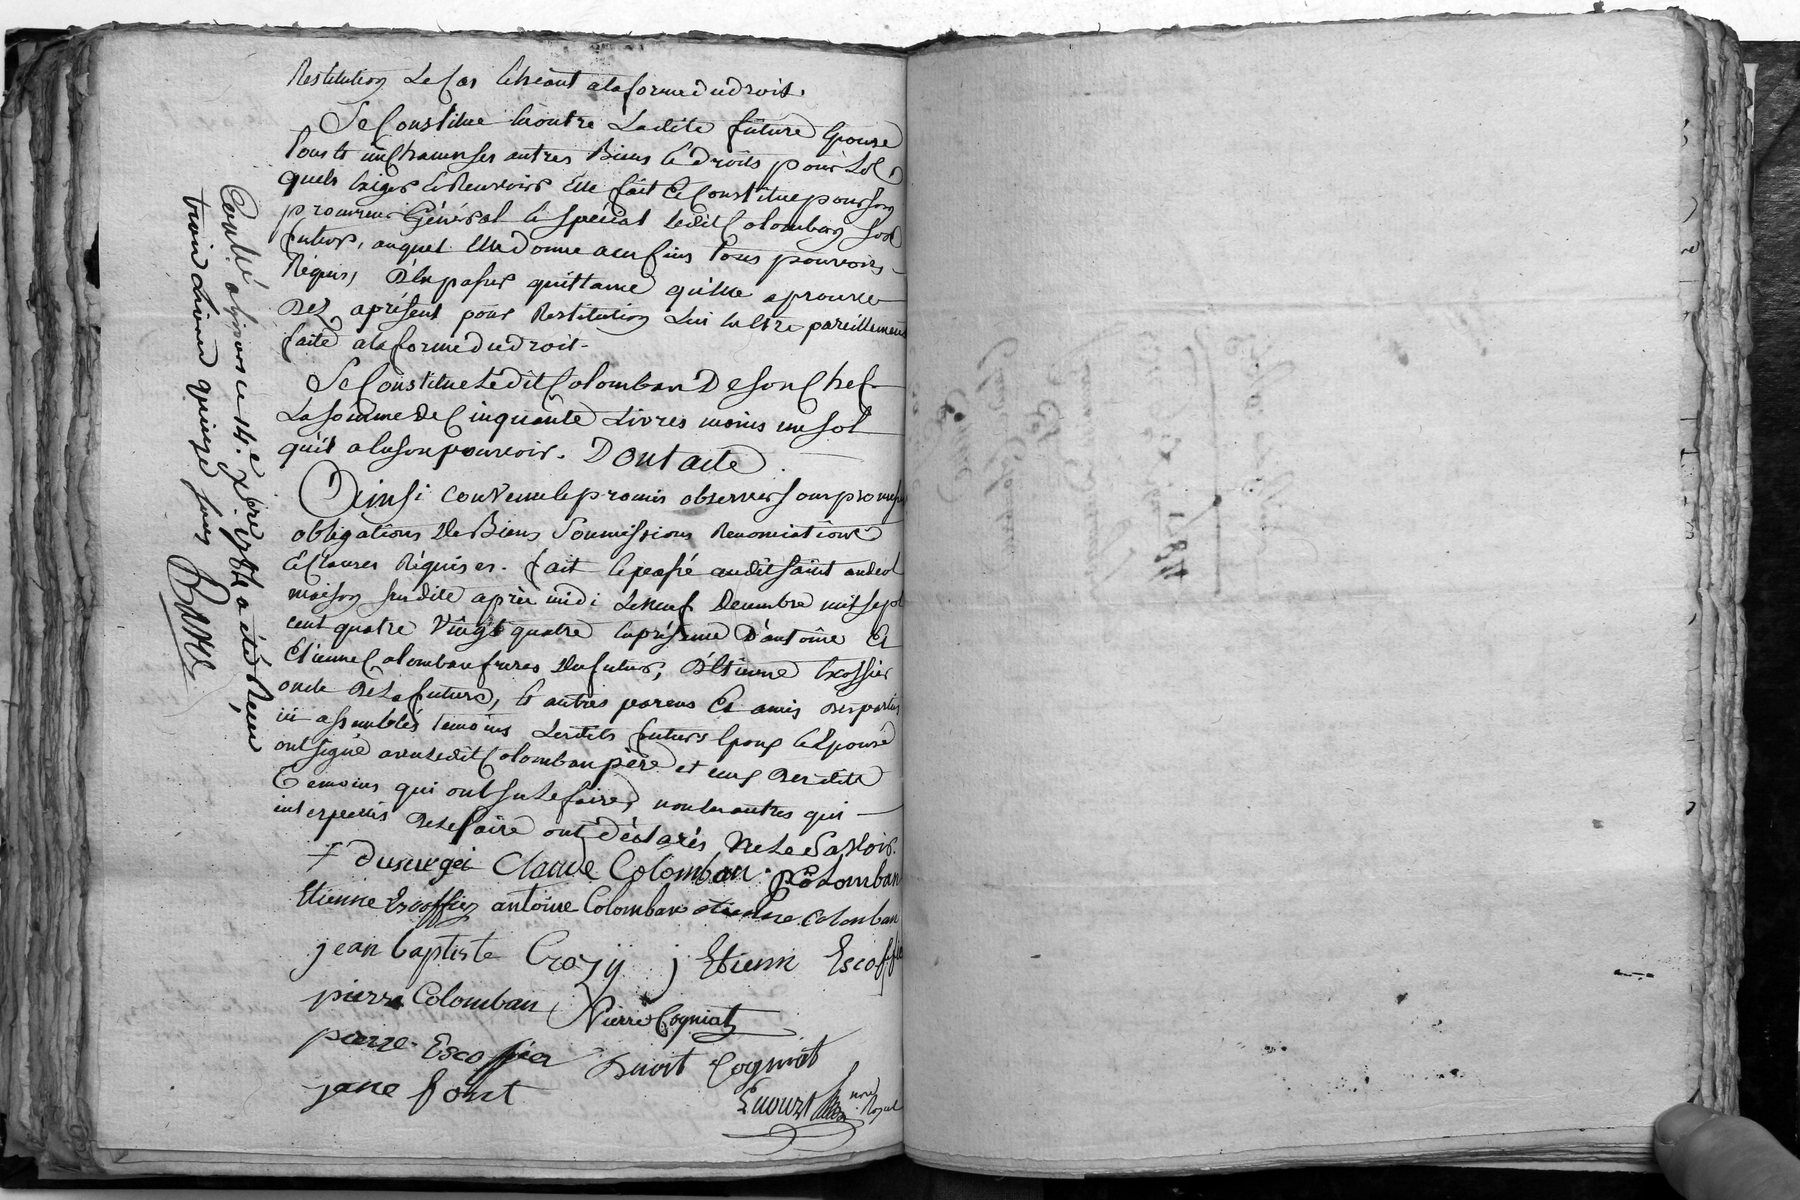 Restitution Le Cas Echeant a la forme du droit.
Se Constitue En outre Ladite future Epouse
tous et un Chacun ses autres Biens et droits pour Les
quels Exiger et Recevoir Elle fait et Constitue pour son
procureur Général et spécial Ledit Colomban son
futur, auquel Elle donne aux fins tous pouvoirs
Requis, D'En passer quittance qu'elle aprouve
Dez aprésent pour Restitution Lui En Etre pareillement
faite a la forme du droit.
Se Constitue Ledit Colomban De son Chef
La somme de Cinquante Livres moins un sol
qu'il a En son pouvoir. Dont acte.
Ainsi convenu et promis observer sous promesses
obligations de Biens Soumissions Renonciations
Et Clauses Réquises. fait et passé audit saint andeol
maison susdite après midi Le neuf Decembre mil sept
cent quatre Vingt quatre En présence D'antoine Et
Etienne Colomban freres du futur, D'Etienne Escoffier
oncle De La future, et autres parens Et amis des parties
ici assemblés temoins Lesdits futurs Epoux et Epouse
ont signé avec Ledit Colomban père et ceux Desdits
temoins qui ont su Le faire, non Les autres qui
interpellés De Le faire ont déclarés Ne Le Savoir.
Claude Colomban Colomban
Etienne Escoffier antoine Colomban etienne Colomban
jean baptiste Crozy j Etienne Escoffie
pierre Colomban Pierre Cogniat
pierre Escoffier Benoit Cogniat
jane font
nore Royal
Conlé a Givors ce 14.e Xbre 1784 a été Reçu
trois Livres quinze sous